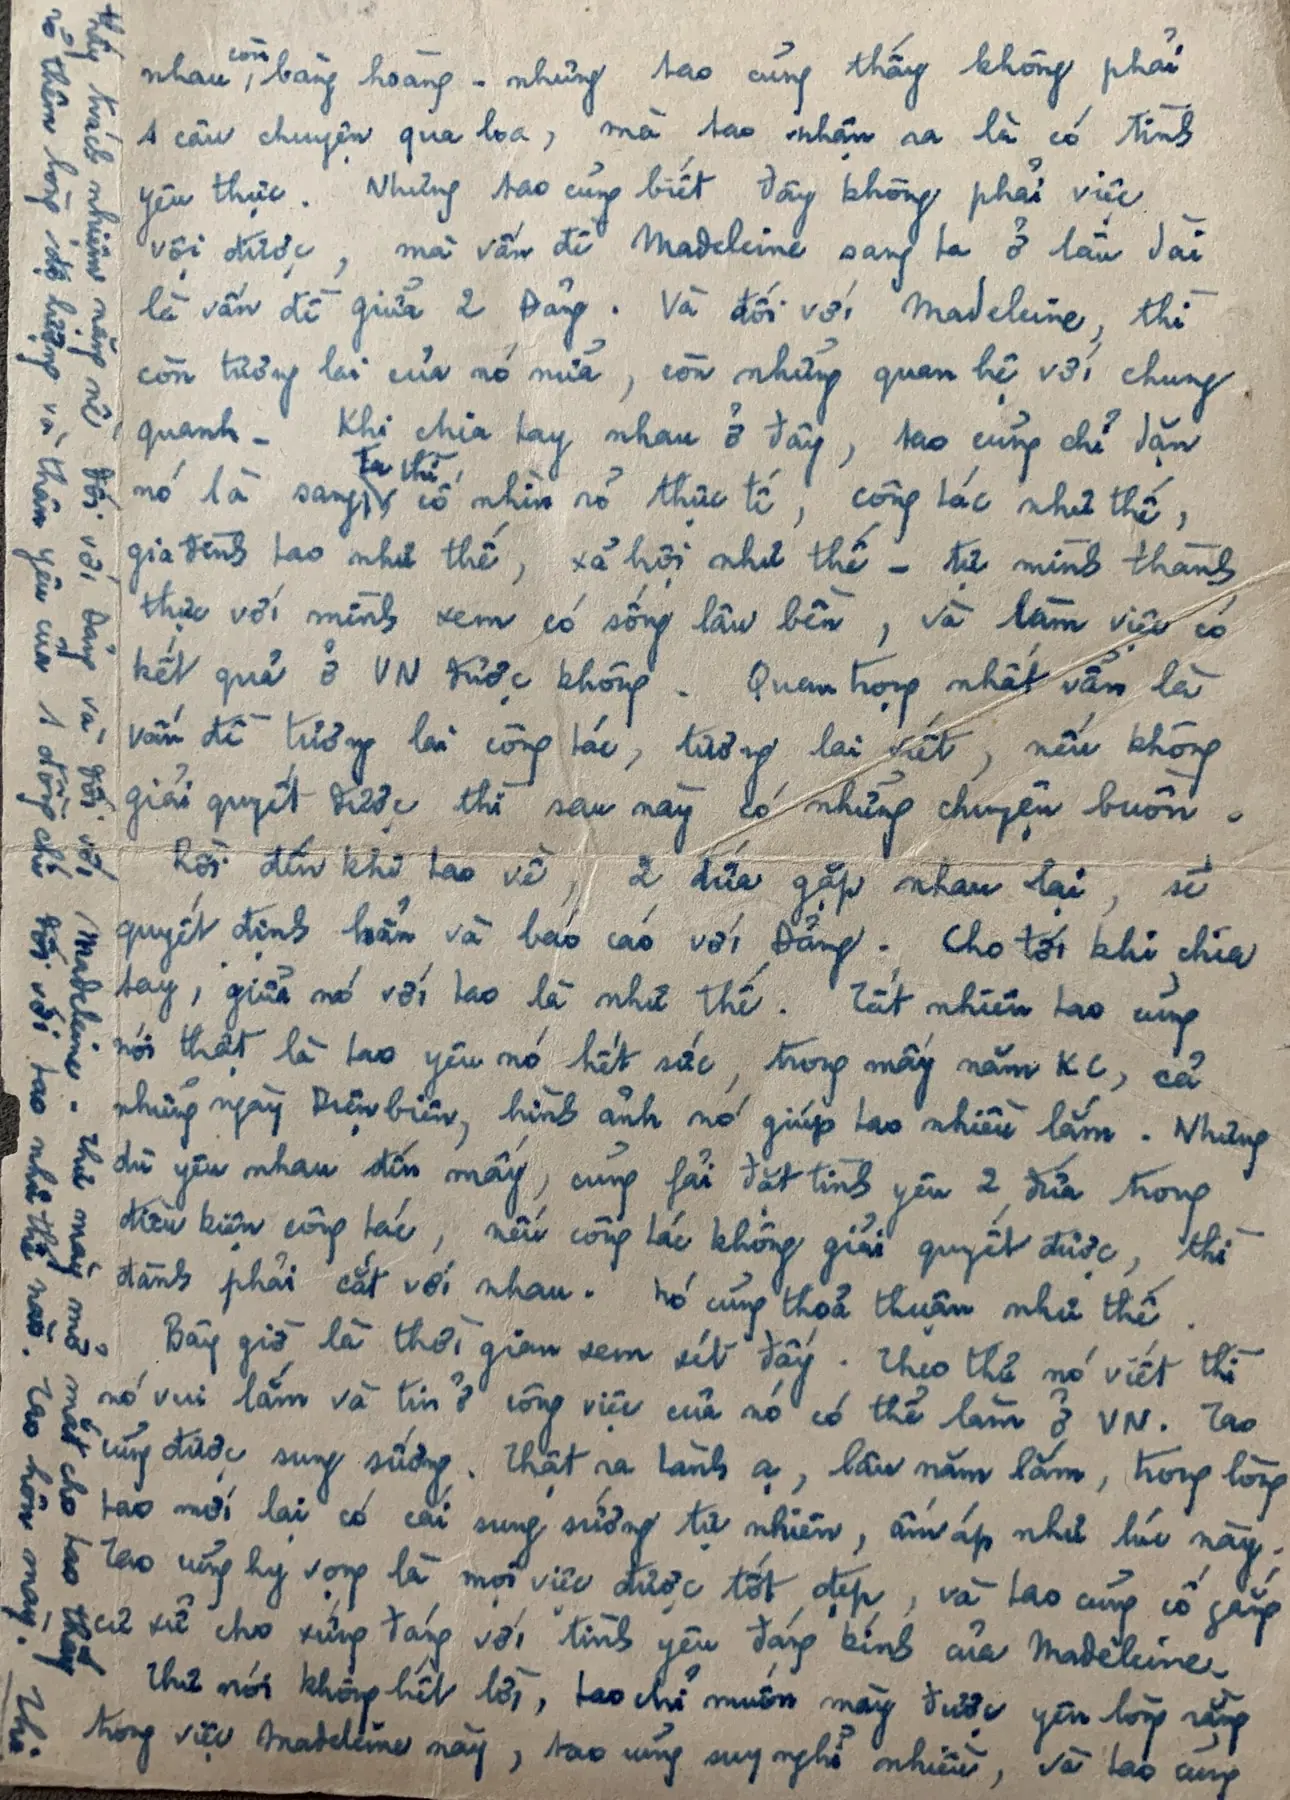 nhau còn, bàng hoàng - nhưng tao cũng thấy không phải
1 câu chuyện qua loa, mà tao nhận ra là có tình
yêu thực. Nhưng tao cũng biết đây không phải việc
vội được, mà vấn đề Madeleine sang ta ở lâu dài
là vấn đề giữa 2 Đảng. Và đối với Madeleine, thì
còn tương lai của nó nữa, còn những quan hệ với chung
quanh - Khi chia tay nhau ở đây, tao cũng chỉ dặn
nó là sang ta thì cố nhìn rõ thực tế, công tác như thế,
gia đình tao như thế, xã hội như thế - tự mình thành
thực với mình xem có sống lâu bền, và làm việc có
kết quả ở VN được không. Quan trọng nhất vẫn là
vấn đề tương lai công tác, tương lai viết, nếu không
giải quyết được thì sau này có những chuyện buồn.
Rồi đến khi tao về, 2 đứa gặp nhau lại, sẽ
quyết định hẳn và báo cáo với Đảng. Cho tới khi chia
tay, giữa nó với tao là như thế. Tất nhiên tao cũng
nói thật là tao yêu nó hết sức, trong mấy năm KC, cả
những ngày Điện biên, hình ảnh nó giúp tao nhiều lắm. Nhưng
dù yêu nhau đến mấy, cũng fải đặt tình yêu 2 đứa trong
điều kiện công tác, nếu công tác không giải quyết được, thì
đành phải cắt với nhau. Nó cũng thoả thuận như thế.
Bây giờ là thời gian xem xét đấy. Theo thư nó viết thì
nó vui lắm và tin ở công việc của nó có thể làm ở VN. Tao
cũng được sung sướng. Thật ra Lành ạ, lâu năm lắm, trong lòng
tao mới lại có cái sung sướng tự nhiên, ấm áp như lúc này.
Tao cũng hy vọng là mọi việc được tốt đẹp, và tao cũng cố gắng
cư xử cho xứng đáng với tình yêu đáng kính của Madeleine.
Thư nói không hết lời, tao chỉ muốn mày được yên lòng rằng
trong việc Madeleine này, tao cũng suy nghĩ nhiều, và tao cũng
thấy trách nhiệm nặng nề đối với Đảng và đối với Madeleine. Thư mày mở mắt cho tao thấy
rõ thêm lòng độ lượng và thân yêu của 1 đồng chí đối với tao như thế nào. Tao hôn mày. Thi